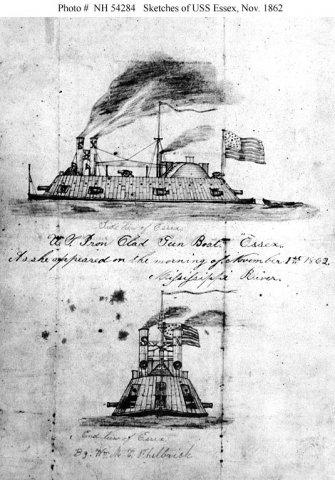 Photo # NH 54284 Sketches of USS Essex, Nov. 1862
Side view of Essex.
U.S. Iron Clad Gun Boat. "Essex"
As she appeared on the morning of November 1st 1862.
Mississippi River.
End view of Essex
By. Wm. M. C. Philbrick